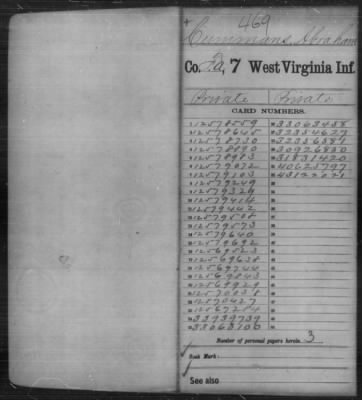 469
Cummans, Abraham
Co. , 7 West Virginia Inf.
Private Private
CARD NUMBERS.
12578559 33063438
12578645 32354627
12578730 32356387
12578890 30926830
12578983 31831420
12579072 40625797
12579103 43122021
12579249
12579329
12579414
12579442
12579508
12579573
12579640
12579692
12569523
12569638
12569744
12569843
12569929
12570038
12570427
12567284
33939739
33063100
Number of personal papers herein 3
Book Mark:
See also